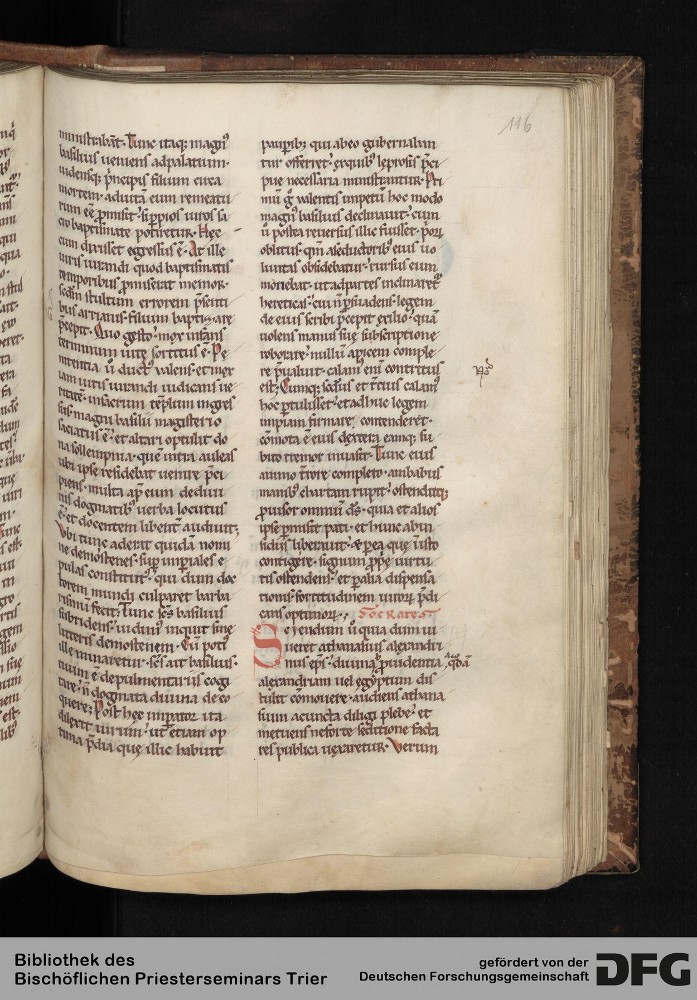 116
ministrabāt. Tunc itaq; magn᷒
basilius ueniens ad palatium.
uidensq; p̄ncipis filium circa
mortem. adiuta eum remeatu
rum eē p̄misit. si p̄pios uiros sa
cro baptismate potiretur. Hęc
cum dixisset egressus ē. At ille
iuris iurandi quod baptismatis
temporibus p̄miserat memor.
sedm̄ stultum errorem p̄senti
bus arrianis. filium baptizare
p̄cepit. Quo gesto. mox infans
terminum uitę sortitus ē. Pe
nitentia ū duct᷒ ualens. et inex
iam iuris iurandi iudicans ue
ritatē. in sacrum tēplum ingres
sus. magni basilii magisterio
saciatus ē. et altari optulit do
na sollempnia. quē intra auleas
ubi ipse residebat uenire p̄ci
piens. multa ap̄ eum de diui
nis dogmatib᷒ uerba locutus
ē. et docentem libenter audiuit;
Vbi tunc aderat quidā nomi
ne demostenes. sup̄ imp̄iales e
pulas constitut᷒. qui dum doc
torem mundi culparet barba
rismū fecit. Tunc sc̄s basilius
subridens. uidim᷒ inquit sine
litteris demostenem. Cū pot᷒
ille minaretur. sc̄s ait basilius.
tuum ē de pulmentariis cogi
tare. n̄ dogmata diuina deco
quere; Post hęc imp̄ator ita
dilexit uirum. ut etiam op
tima p̄dia quę illic habuit
paup̄ib; qui ab eo gubernaban
tur offerret. ex quib᷒ leprosis p̄ci
pue necessaria ministrantur. Pri
mū g̊ ualentis impetū hoc modo
magn᷒ basilius declinauit. cum
ū postea reuersus illic fuisset. p̄orū
oblitus. qm̄ a seductorib᷒ eius uo
luntas obsidebatur. rursus eum
monebat. ut ad partes inclinaret᷒
hereticas. cui n̄ p̄suadens. legem
de eius scribi p̄cepit exilio. quā
uolens manus suę subscriptione
roborare. nullū apicem comple
re p̄ualuit. calam᷒ eni contritus
est; Cumq; scd̄us et tc̄ius calam᷒
hoc p̄tulisset. et adhuc legem
impiam firmare contenderet.
cōmota ē eius dextera eamq; su
bito tremor inuasit. Tunc eius
animo t̄rore completo. ambabus
manib᷒ chartam rupit. ostenditq;
p̄uisor omnium d̄s. quia et alios
ipse p̄misit pati. et hunc ab in
sidiis liberauit. & p̄ ea que iusto
contigere. signum p̄p̄ę uirtu
tis ostendens. et p̄ alia dispensa
tionis. fortitudinem uirorū p̄di
cans optimorū.; SOCRATES
Sciendum ū quia dum ui
ueret athanasius alexandri
nus ep̄s. diuina p̄uidentia qdā
alexandriam uel egyptum dis
tulit cōmouere. audiens athana
sium a cuncta diligi plebe. et
metuens ne forte seditione facta
res publica uexaretur. Verum
Bibliothek des
Bischöflichen Priesterseminars Trier
gefördert von der
Deutschen Forschungsgemeinschaft
DFG